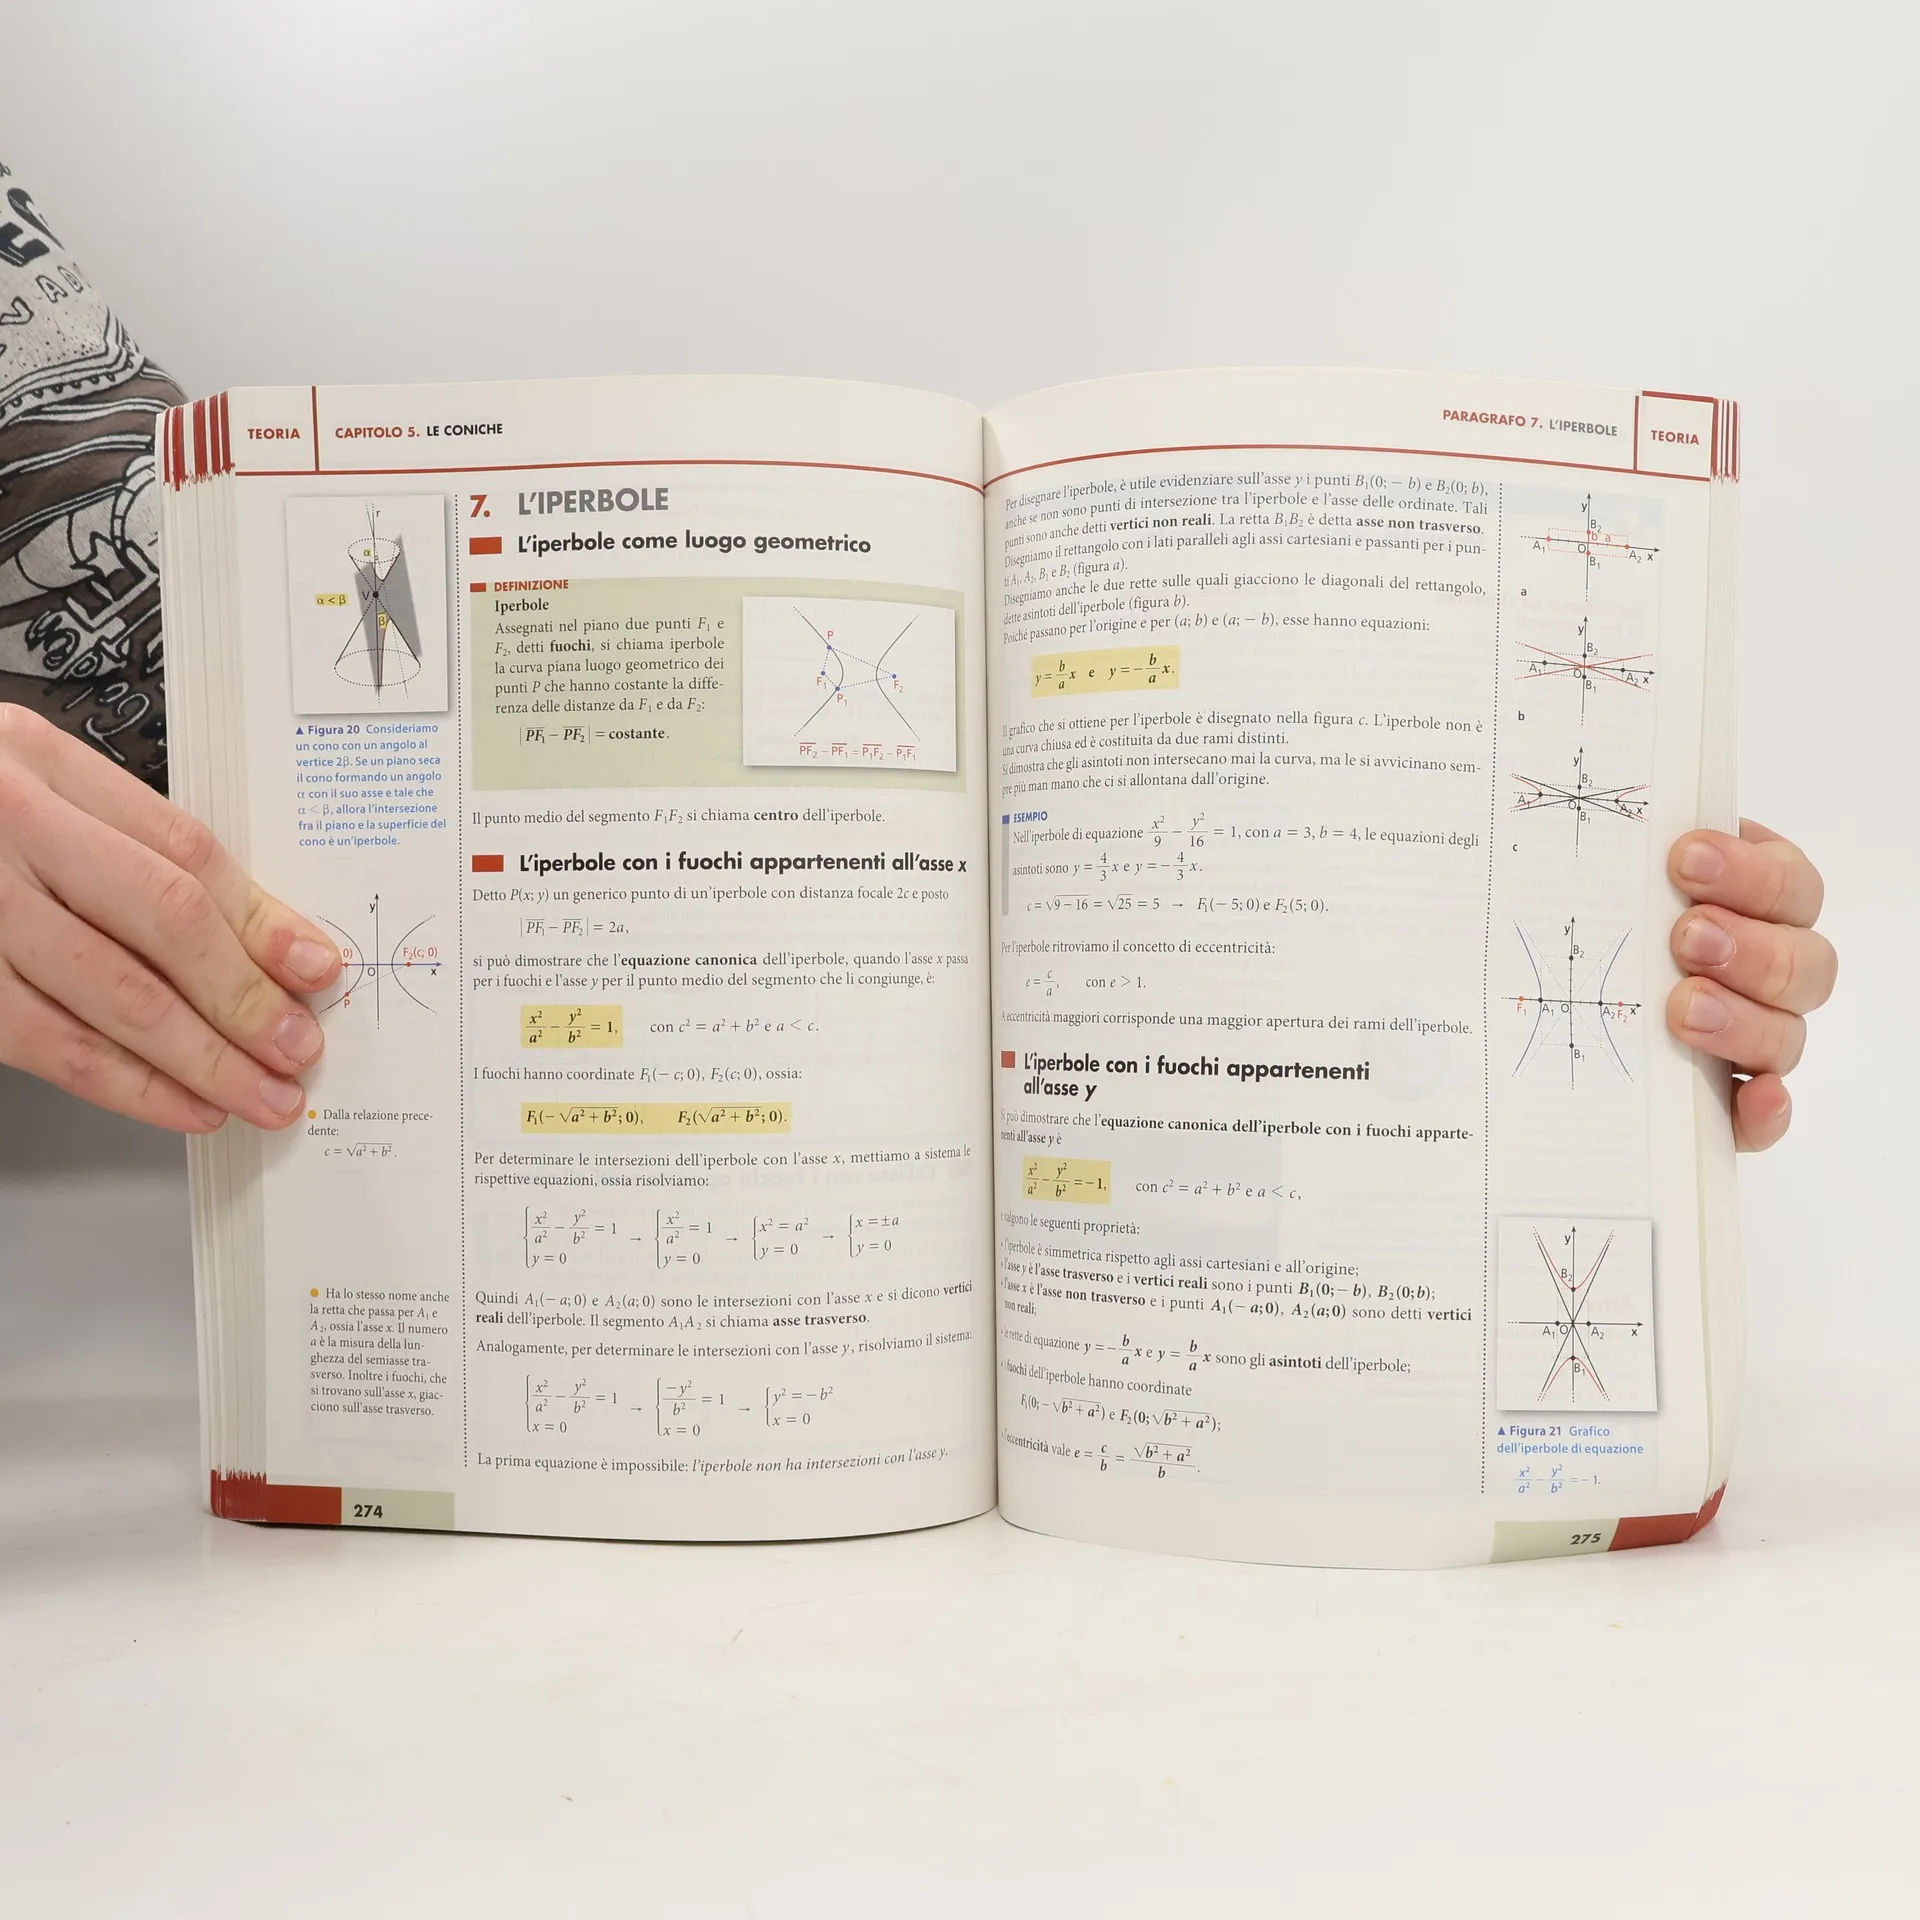 TEORIA
CAPITOLO 5. LE CONICHE
r
α
V
α < β
β
▲ Figura 20 Consideriamo
un cono con un angolo al
vertice 2β. Se un piano seca
il cono formando un angolo
α con il suo asse e tale che
α < β, allora l'intersezione
fra il piano e la superficie del
cono è un'iperbole.
y
0)
F₂(c; 0)
O
x
P
Dalla relazione prece-
dente:
c = √(a² + b²).
Ha lo stesso nome anche
la retta che passa per A₁ e
A₂, ossia l'asse x. Il numero
a è la misura della lun-
ghezza del semiasse tra-
sverso. Inoltre i fuochi, che
si trovano sull'asse x, giac-
ciono sull'asse trasverso.
7. L'IPERBOLE
L'iperbole come luogo geometrico
DEFINIZIONE
Iperbole
Assegnati nel piano due punti F₁ e
F₂, detti fuochi, si chiama iperbole
la curva piana luogo geometrico dei
punti P che hanno costante la diffe-
renza delle distanze da F₁ e da F₂:
|PF₁ − PF₂| = costante.
P
F₁
F₂
P₁
PF₂ − PF₁ = P₁F₂ − P₁F₁
Il punto medio del segmento F₁F₂ si chiama centro dell'iperbole.
L'iperbole con i fuochi appartenenti all'asse x
Detto P(x; y) un generico punto di un'iperbole con distanza focale 2c e posto
|PF₁ − PF₂| = 2a,
si può dimostrare che l'equazione canonica dell'iperbole, quando l'asse x passa
per i fuochi e l'asse y per il punto medio del segmento che li congiunge, è:
x²/a² − y²/b² = 1, con c² = a² + b² e a < c.
I fuochi hanno coordinate F₁(− c; 0), F₂(c; 0), ossia:
F₁(− √(a² + b²); 0), F₂(√(a² + b²); 0).
Per determinare le intersezioni dell'iperbole con l'asse x, mettiamo a sistema le
rispettive equazioni, ossia risolviamo:
{x²/a² − y²/b² = 1 → {x²/a² = 1 → {x² = a² → {x = ±a
y = 0 y = 0 y = 0 y = 0
Quindi A₁(− a; 0) e A₂(a; 0) sono le intersezioni con l'asse x e si dicono vertici
reali dell'iperbole. Il segmento A₁A₂ si chiama asse trasverso.
Analogamente, per determinare le intersezioni con l'asse y, risolviamo il sistema:
{x²/a² − y²/b² = 1 → {−y²/b² = 1 → {y² = − b²
x = 0 x = 0 x = 0
La prima equazione è impossibile: l'iperbole non ha intersezioni con l'asse y.
274
PARAGRAFO 7. L'IPERBOLE
TEORIA
Per disegnare l'iperbole, è utile evidenziare sull'asse y i punti B₁(0; − b) e B₂(0; b),
anche se non sono punti di intersezione tra l'iperbole e l'asse delle ordinate. Tali
punti sono anche detti vertici non reali. La retta B₁B₂ è detta asse non trasverso.
Disegniamo il rettangolo con i lati paralleli agli assi cartesiani e passanti per i pun-
ti A₁, A₂, B₁ e B₂ (figura a).
Disegniamo anche le due rette sulle quali giacciono le diagonali del rettangolo,
dette asintoti dell'iperbole (figura b).
Poiché passano per l'origine e per (a; b) e (a; − b), esse hanno equazioni:
y = b/a x e y = − b/a x.
Il grafico che si ottiene per l'iperbole è disegnato nella figura c. L'iperbole non è
una curva chiusa ed è costituita da due rami distinti.
Si dimostra che gli asintoti non intersecano mai la curva, ma le si avvicinano sem-
pre più man mano che ci si allontana dall'origine.
ESEMPIO
Nell'iperbole di equazione x²/9 − y²/16 = 1, con a = 3, b = 4, le equazioni degli
asintoti sono y = 4/3 x e y = − 4/3 x.
c = √(9 − 16) = √25 = 5 → F₁(− 5; 0) e F₂(5; 0).
Per l'iperbole ritroviamo il concetto di eccentricità:
e = c/a, con e > 1.
A eccentricità maggiori corrisponde una maggior apertura dei rami dell'iperbole.
L'iperbole con i fuochi appartenenti
all'asse y
Si può dimostrare che l'equazione canonica dell'iperbole con i fuochi apparte-
nenti all'asse y è
x²/a² − y²/b² = −1, con c² = a² + b² e a < c,
e valgono le seguenti proprietà:
• l'iperbole è simmetrica rispetto agli assi cartesiani e all'origine;
• l'asse y è l'asse trasverso e i vertici reali sono i punti B₁(0; − b), B₂(0; b);
• l'asse x è l'asse non trasverso e i punti A₁(− a; 0), A₂(a; 0) sono detti vertici
non reali;
• le rette di equazione y = − b/a x e y = b/a x sono gli asintoti dell'iperbole;
• i fuochi dell'iperbole hanno coordinate
F₁(0; − √(b² + a²)) e F₂(0; √(b² + a²));
• l'eccentricità vale e = c/b = √(b² + a²)/b.
y
B₂
b a
A₁ O A₂ x
B₁
a
y
B₂
A₁ O A₂ x
B₁
b
y
B₂
A₁ O A₂ x
B₁
c
y
B₂
F₁ A₁ O A₂ F₂ x
B₁
y
B₂
A₁ O A₂ x
B₁
▲ Figura 21 Grafico
dell'iperbole di equazione
x²/a² − y²/b² = − 1.
275